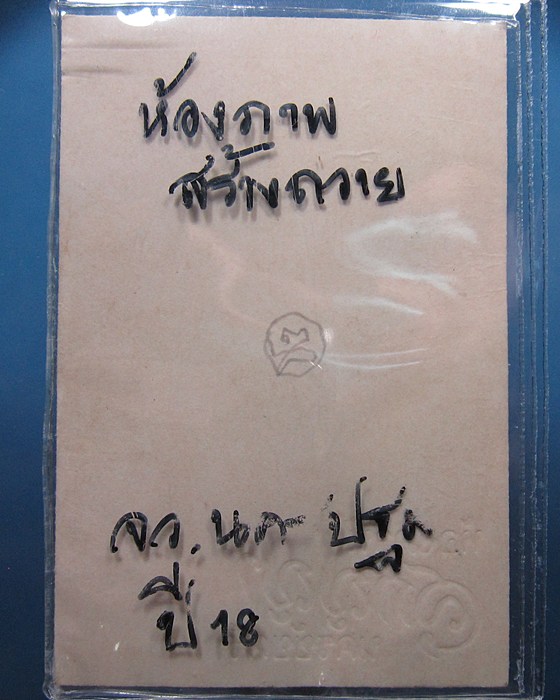 ห้องภาพ
สร้างถวาย
จว. นค ปฐม
ปี 18